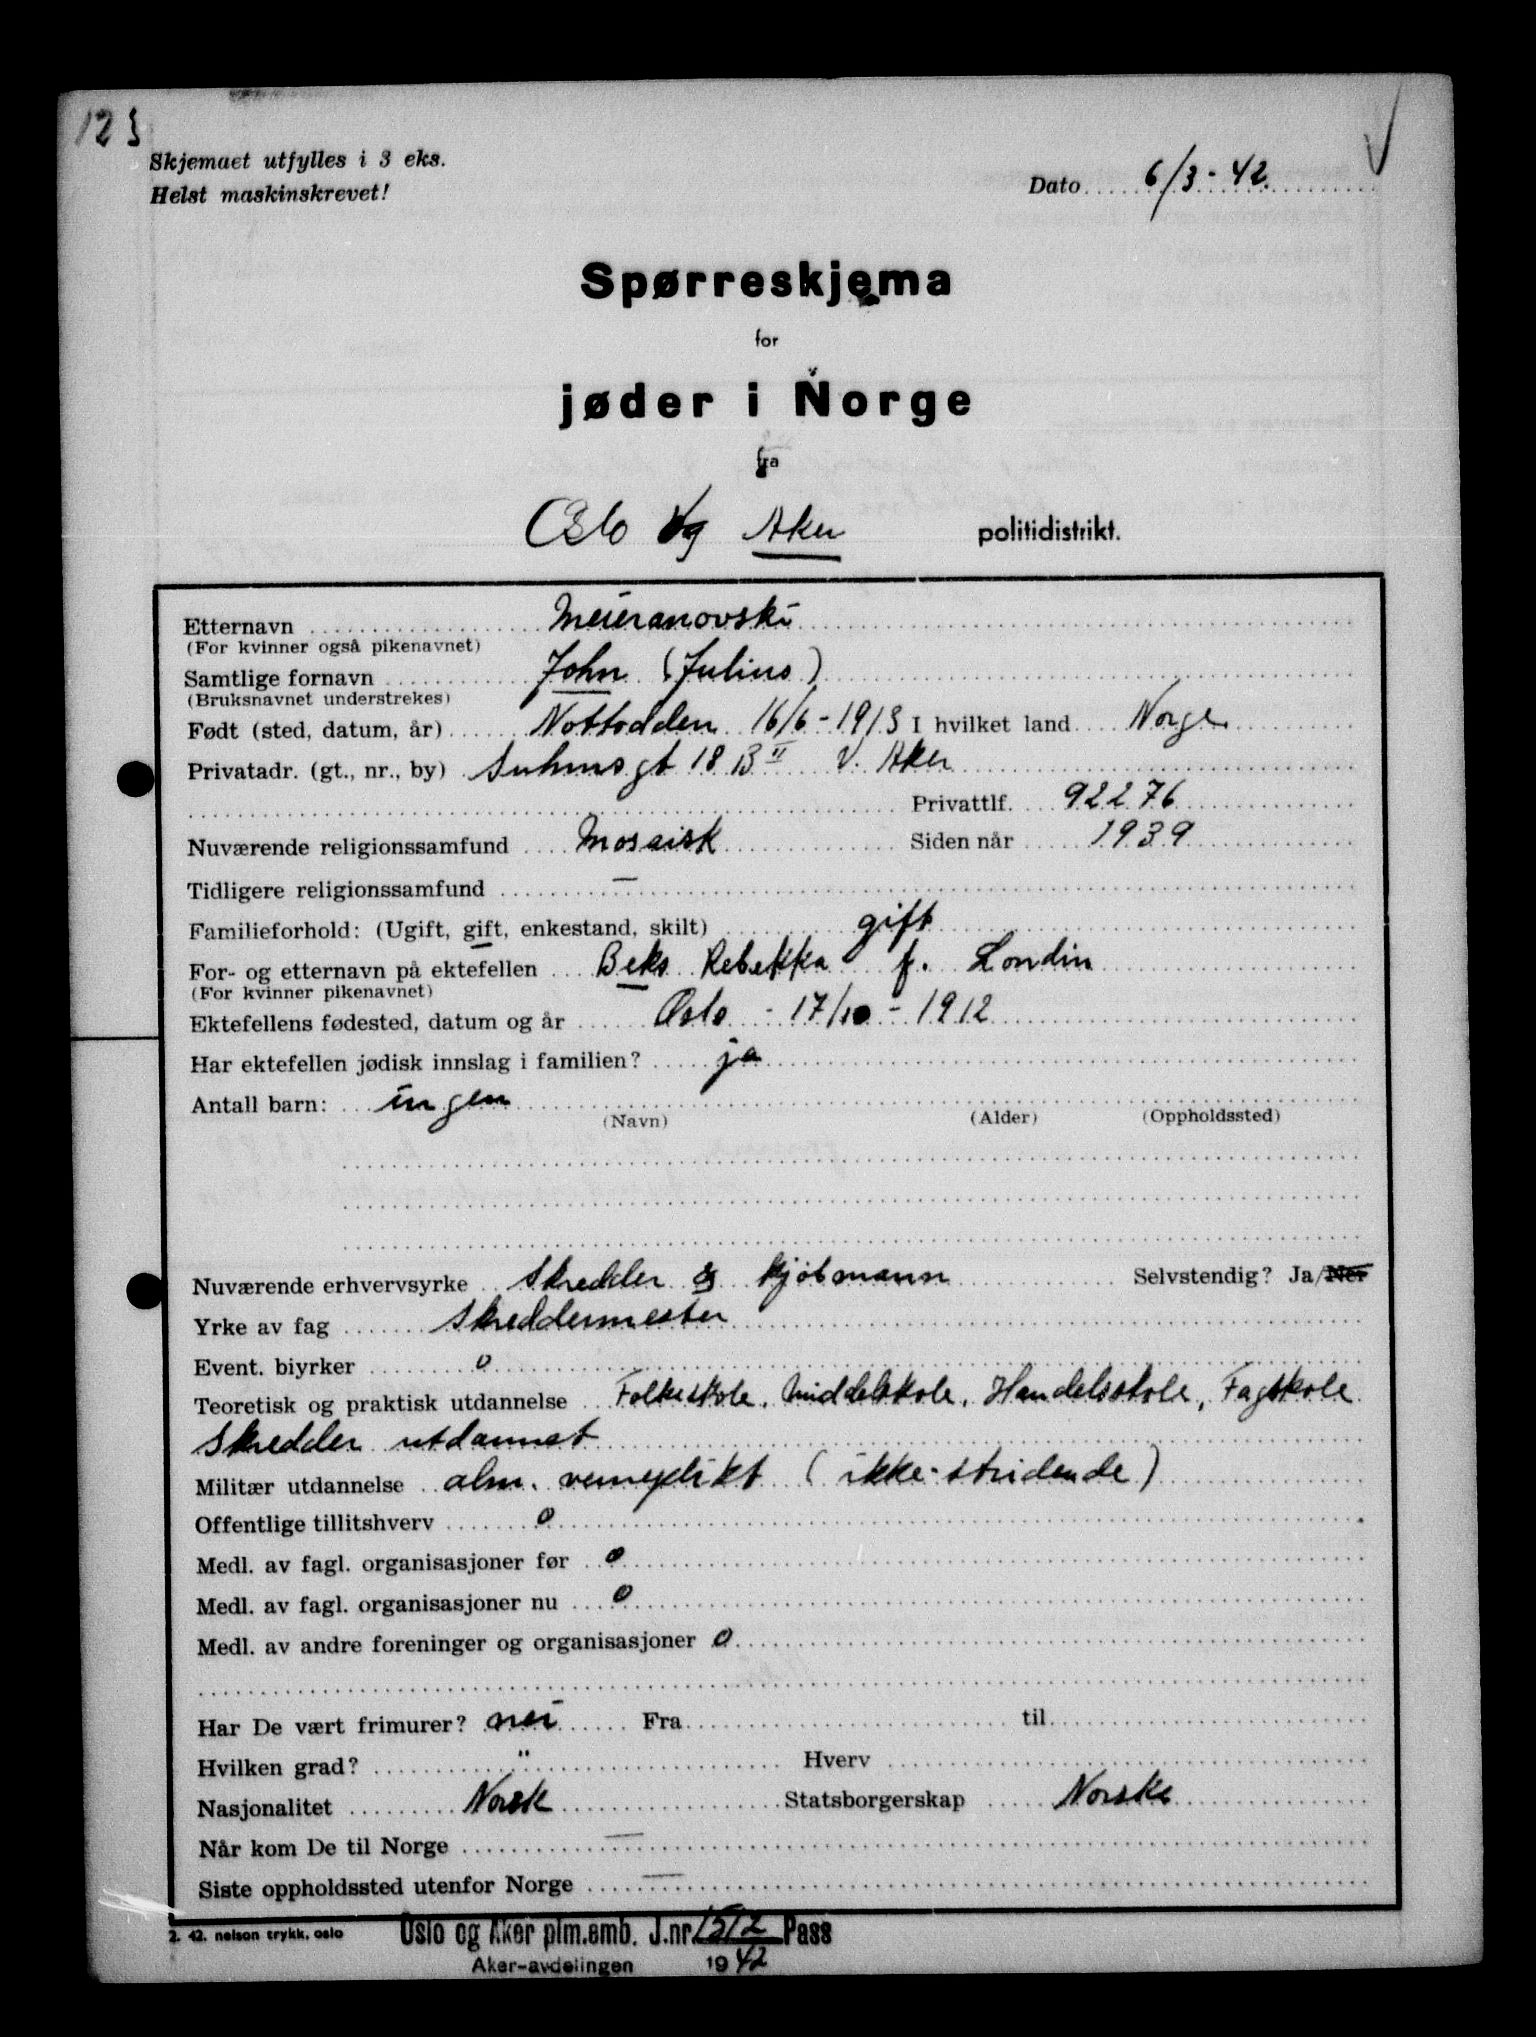 123
Skjemaet utfylles i 3 eks.
Helst maskinskrevet!
Dato 6/3-42.
Spørreskjema
for
jøder i Norge
fra
Oslo og Aker politidistrikt.
Etternavn Meieranovski
(For kvinner også pikenavnet)
Samtlige fornavn John (Julius)
(Bruksnavnet understrekes)
Født (sted, datum, år) Nottodden 16/6-1913 I hvilket land Norge
Privatadr. (gt., nr., by) Suhmsgt 18 B II V. Aker
Privattlf. 92276
Nuværende religionssamfund Mosaisk Siden når 1939
Tidligere religionssamfund —
Familieforhold: (Ugift, gift, enkestand, skilt) gift
For- og etternavn på ektefellen Beks Rebekka f. Londin
(For kvinner pikenavnet)
Ektefellens fødested, datum og år Oslo - 17/10 - 1912
Har ektefellen jødisk innslag i familien? ja
Antall barn: ingen
(Navn) (Alder) (Oppholdssted)
Nuværende erhvervsyrke Skredder & kjøbmann Selvstendig? Ja/Nei
Yrke av fag Skreddermester
Event. biyrker 0
Teoretisk og praktisk utdannelse Folkeskole, Middelskole, Handelsskole, Fagskole
Skredder utdannet
Militær utdannelse alm. verneplikt (ikke-stridende)
Offentlige tillitshverv 0
Medl. av fagl. organisasjoner før 0
Medl. av fagl. organisasjoner nu 0
Medl. av andre foreninger og organisasjoner 0
Har De vært frimurer? nei Fra til
Hvilken grad? " Hverv
Nasjonalitet Norsk Statsborgerskap Norske
Når kom De til Norge —
Siste oppholdssted utenfor Norge —
2. 42. nelson trykk. oslo
Oslo og Aker plm.emb. J.nr. 1512 Pass
Aker-avdelingen 1942